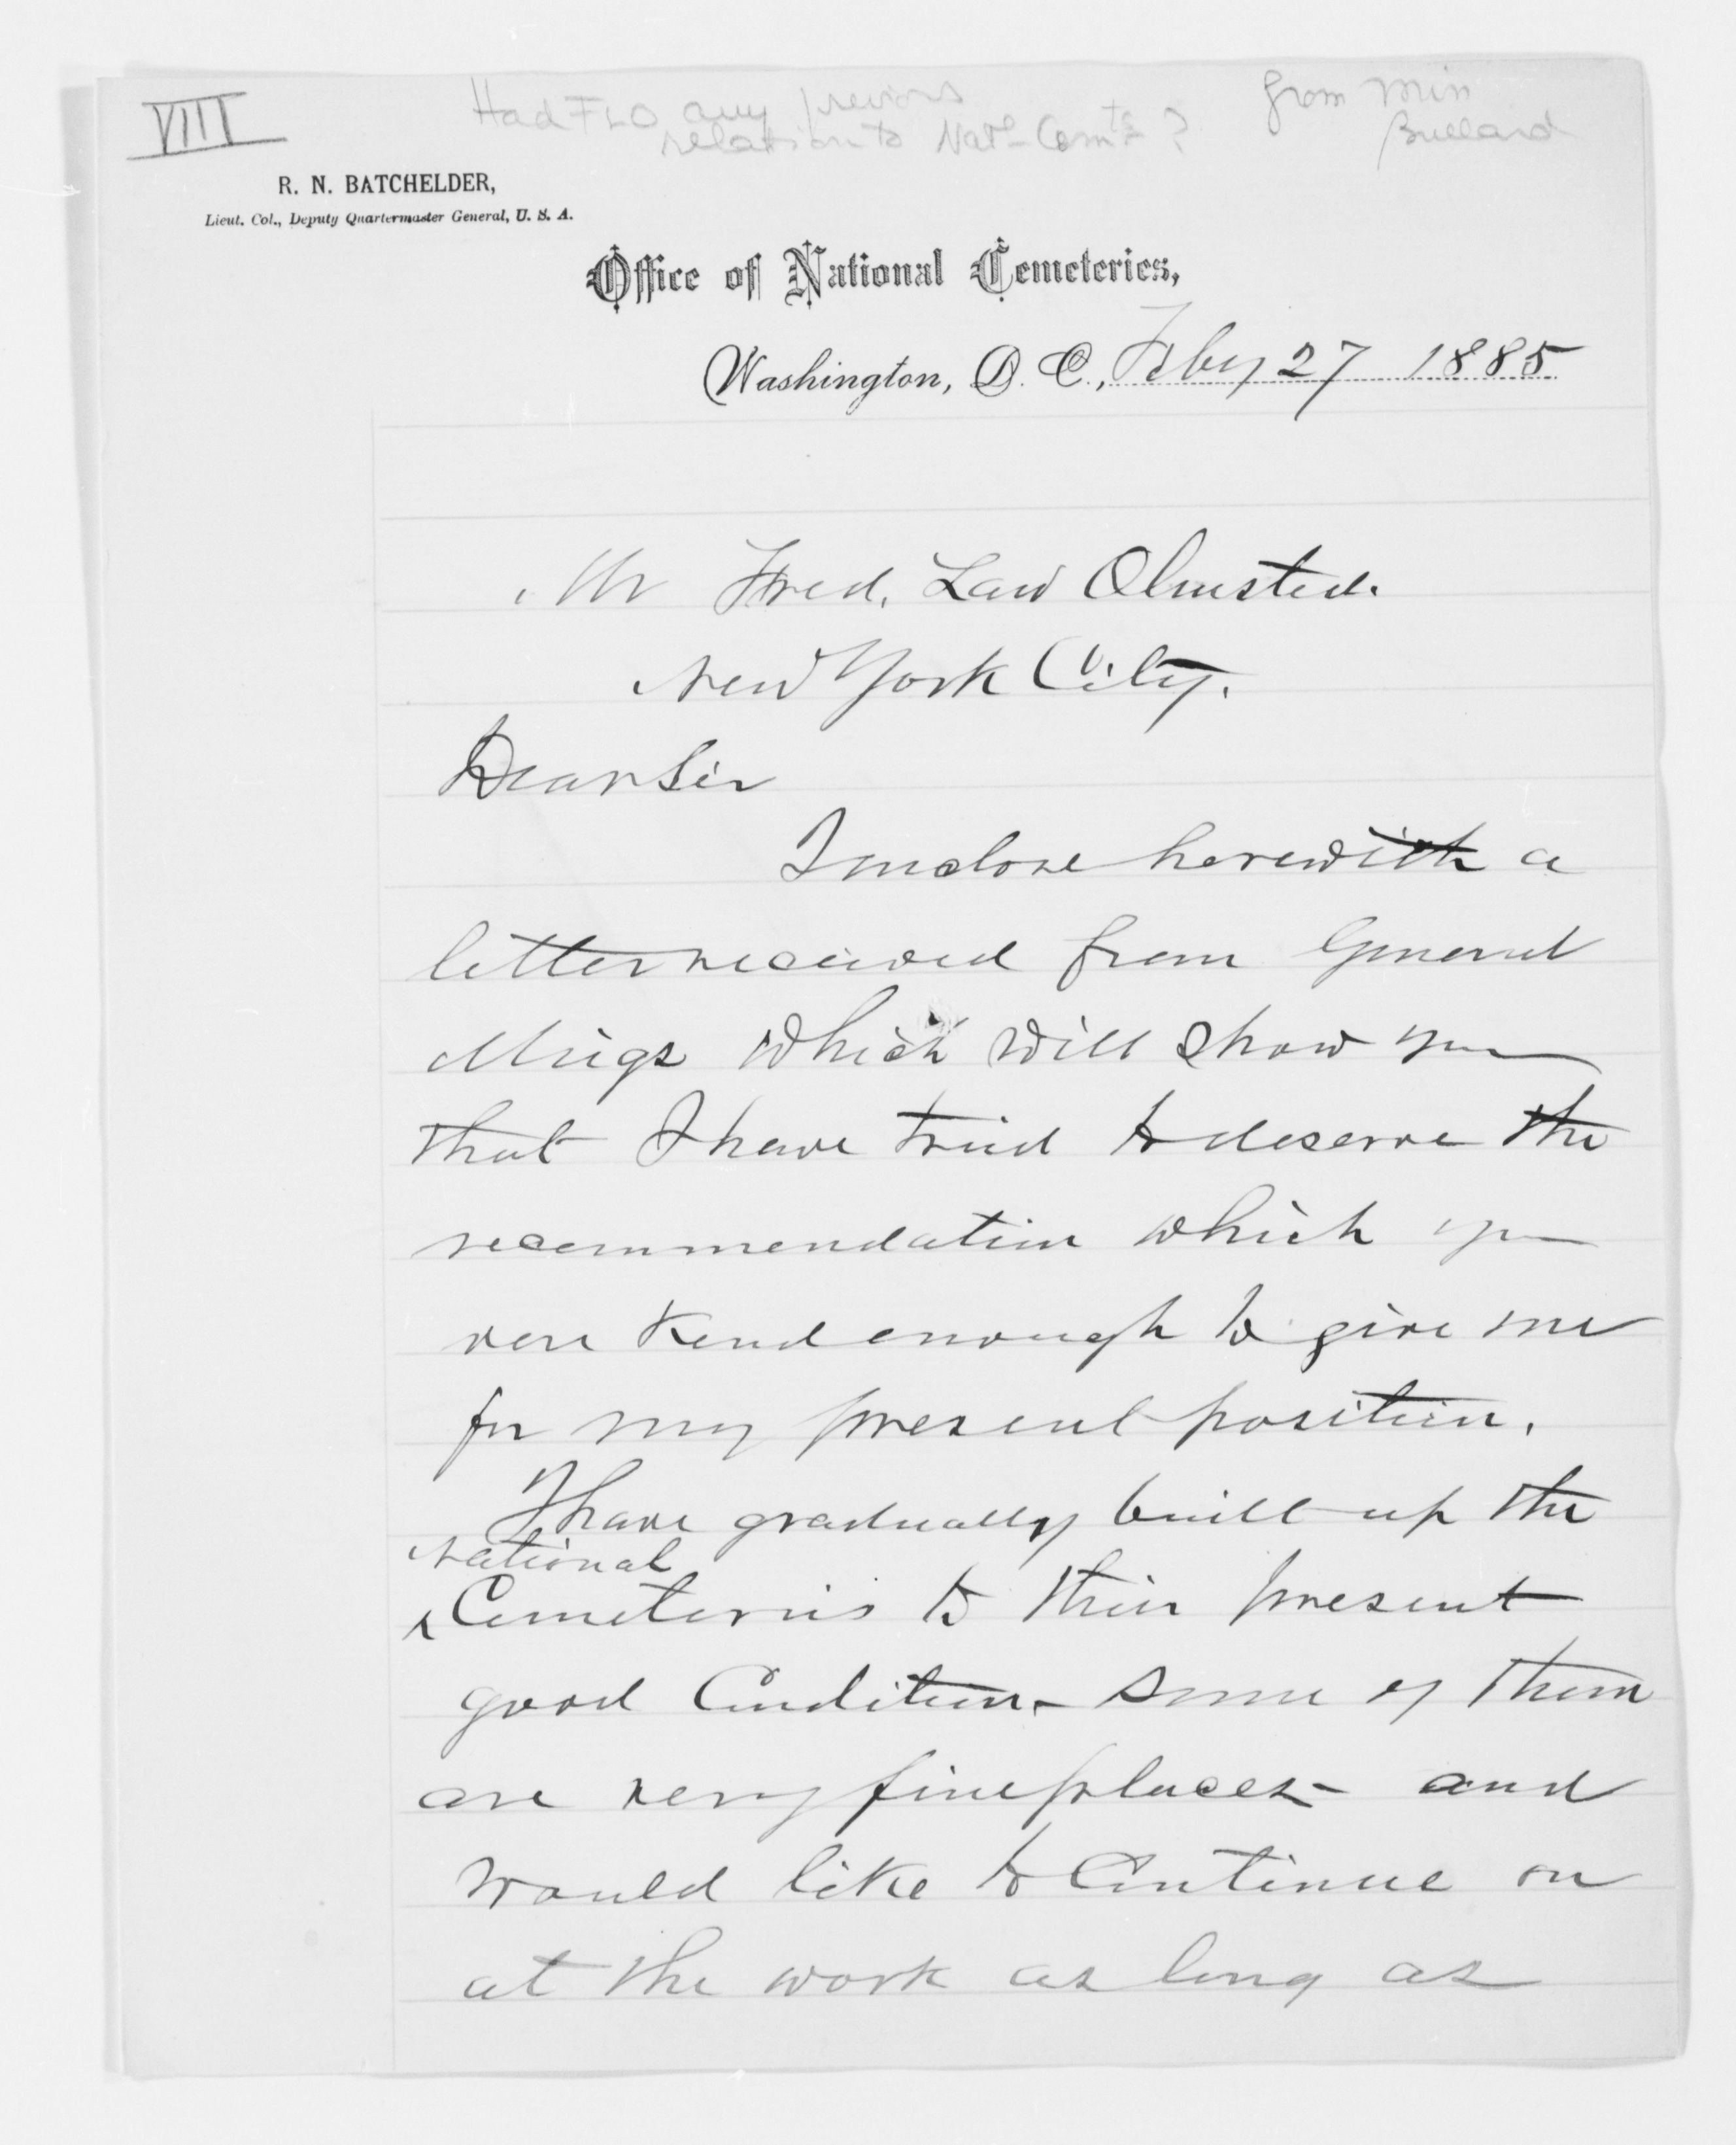 VIII
Had FLO any previous
relation to Natl Cemts ?
from Miss
Bullard
R. N. BATCHELDER,
Lieut. Col., Deputy Quartermaster General, U. S. A.
Office of National Cemeteries,
Washington, D. C., Feby 27 1885
Mr Fred. Law Olmsted.
New York City.
Dear Sir
I inclose herewith a
letter received from General
Meigs which will show you
that I have tried to deserve the
recommendation which you
were kind enough to give me
for my present position.
I have gradually built up the
National
Cemeteries to their present
good Condition - some of them
are very fine places - and
would like to Continue on
at the work as long as